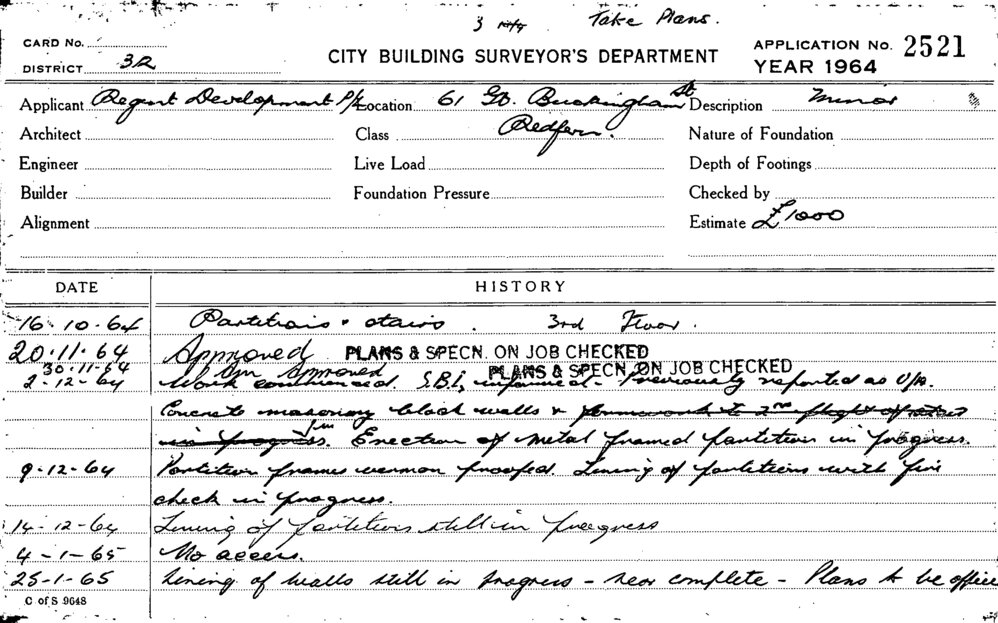 3 Take Plans.
CARD No.
DISTRICT 32
CITY BUILDING SURVEYOR'S DEPARTMENT
APPLICATION No. 2521
YEAR 1964
Applicant Regent Development P/L Location 61 Gt. Buckingham St Description Minor
Architect Class Redfern. Nature of Foundation
Engineer Live Load Depth of Footings
Builder Foundation Pressure Checked by
Alignment Estimate £1000
DATE HISTORY
16.10.64 Partitions & stairs. 3rd Floor.
20.11.64 Approved PLANS & SPECN. ON JOB CHECKED
30.11.64 Approved PLANS & SPECN. ON JOB CHECKED
2-12-64 Work commenced. S.B.I. informed. Previously reported as U/A.
Concrete masonry block walls & formwork to 2nd flight of stairs
in progress. Erection of metal framed partition in progress.
9-12-64 Partition frames vermon proofed. Lining of partitions with fire
check in progress.
14-12-64 Lining of partitions still in progress
4-1-65 No access.
25-1-65 Lining of walls still in progress - near complete - Plans to be office
C of S 9648